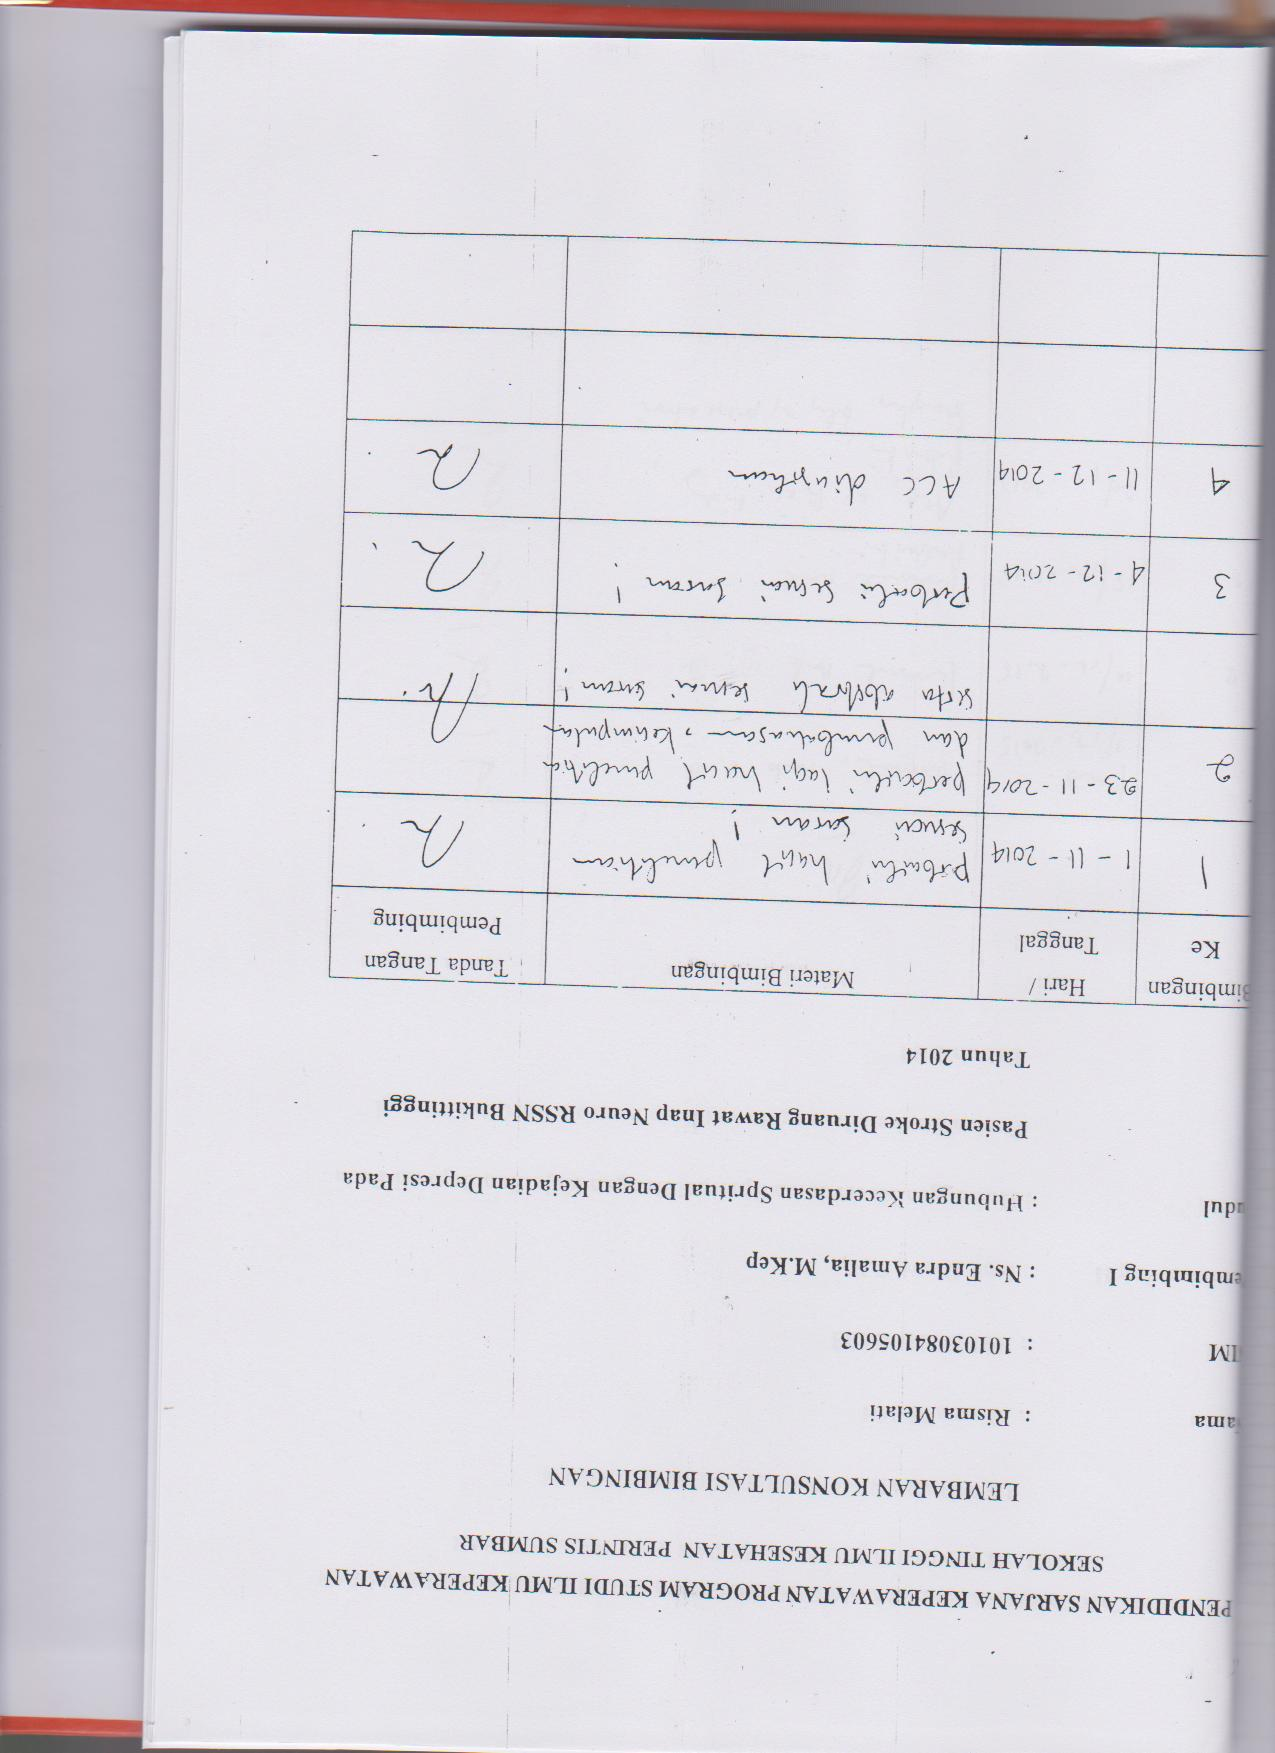 PENDIDIKAN SARJANA KEPERAWATAN PROGRAM STUDI ILMU KEPERAWATAN
SEKOLAH TINGGI ILMU KESEHATAN PERINTIS SUMBAR
LEMBARAN KONSULTASI BIMBINGAN
ama : Risma Melati
IM : 10103084105603
embimbing I : Ns. Endra Amalia, M.Kep
udul : Hubungan Kecerdasan Spritual Dengan Kejadian Depresi Pada
Pasien Stroke Diruang Rawat Inap Neuro RSSN Bukittinggi
Tahun 2014
Bimbingan Hari / Materi Bimbingan Tanda Tangan
Ke Tanggal Pembimbing
1 1 - 11 - 2014 perbaiki hasil penelitian
sesuai saran !
2 23 - 11 - 2014 perbaiki lagi hasil penelitian
dan pembahasan, kesimpulan
serta abstrak sesuai saran !
3 4 - 12 - 2014 Perbaiki sesuai saran !
4 11 - 12 - 2014 ACC diujikan